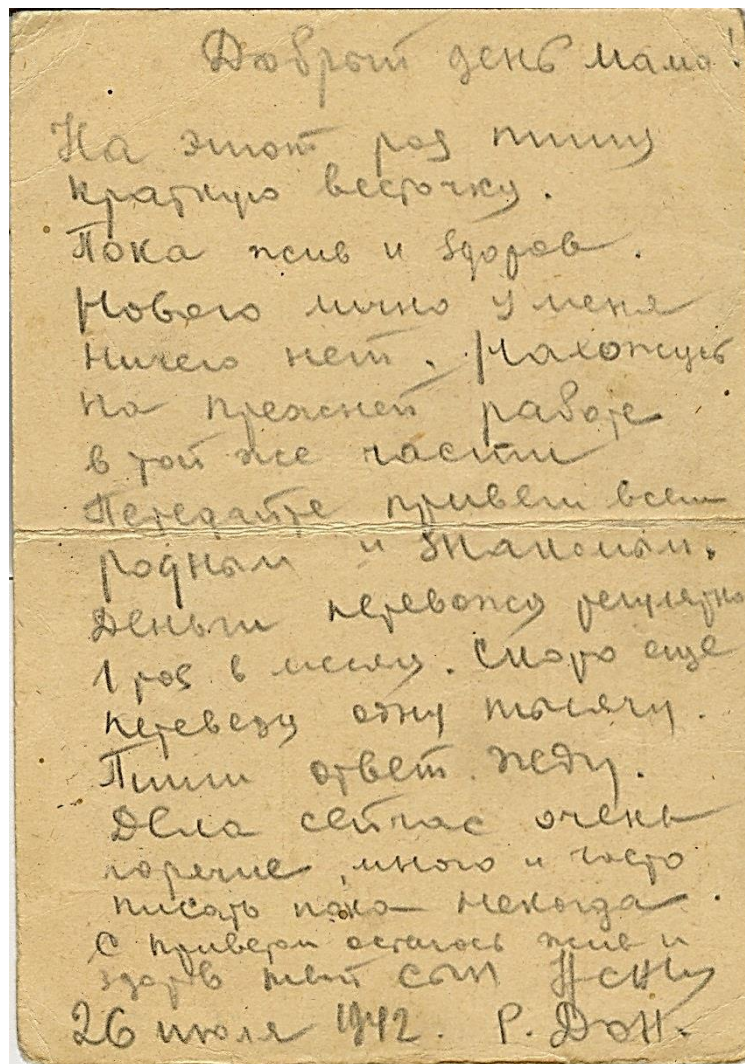 Добрый день мама!
На этот раз пишу
краткую весточку.
Пока жив и здоров.
Нового лично у меня
ничего нет. Нахожусь
на прежней работе
в той же части
Передайте привет всем
родным и знакомым.
Деньги перевожу регулярно
1 раз в месяц. Скоро еще
переведу одну тысячу.
Пиши ответ. Жду.
Дела сейчас очень
горячие, много и часто
писать пока некогда.
С приветом остаюсь жив и
здоров твой сын
26 июля 1942. Р. Дон.